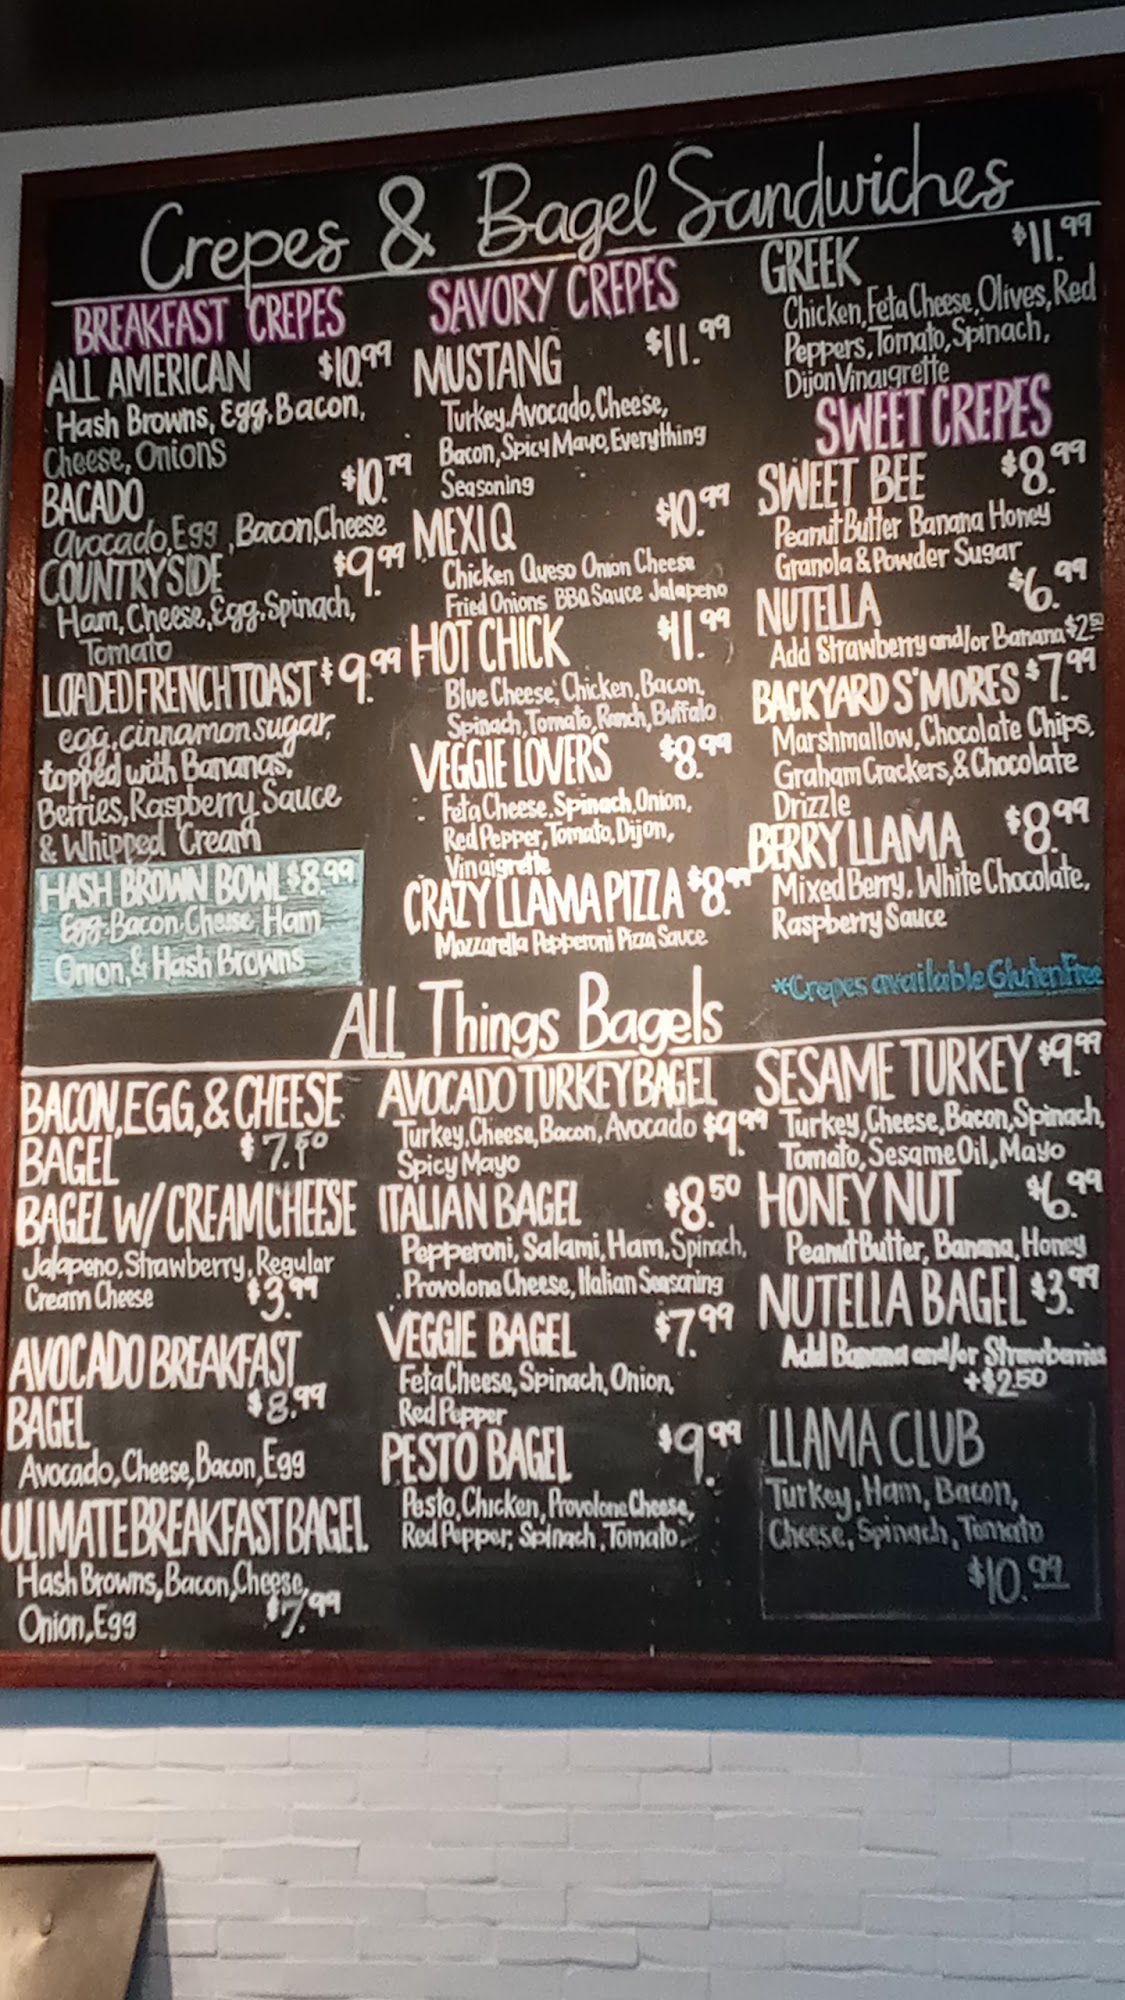 Crepes & Bagel Sandwiches
BREAKFAST CREPES
ALL AMERICAN $10.99
Hash Browns, Egg, Bacon,
Cheese, Onions
BACADO $10.79
Avocado, Egg, Bacon, Cheese
COUNTRYSIDE $9.99
Ham, Cheese, Egg, Spinach,
Tomato
LOADED FRENCH TOAST $9.99
egg, cinnamon sugar,
topped with Bananas,
Berries, Raspberry Sauce
& Whipped Cream
HASH BROWN BOWL $8.99
Egg Bacon Cheese, Ham
Onion, & Hash Browns
SAVORY CREPES
MUSTANG $11.99
Turkey, Avocado, Cheese,
Bacon, Spicy Mayo, Everything
Seasoning
MEXI Q $10.99
Chicken Queso Onion Cheese
Fried Onions BBQ Sauce Jalapeno
HOT CHICK $11.99
Blue Cheese, Chicken, Bacon,
Spinach, Tomato, Ranch, Buffalo
VEGGIE LOVERS $8.99
Feta Cheese, Spinach, Onion,
Red Pepper, Tomato, Dijon,
Vinaigrette
CRAZY LLAMA PIZZA $8.99
Mozzarella Pepperoni Pizza Sauce
GREEK $11.99
Chicken, Feta Cheese, Olives, Red
Peppers, Tomato, Spinach,
Dijon Vinaigrette
SWEET CREPES
SWEET BEE $8.99
Peanut Butter Banana Honey
Granola & Powder Sugar
NUTELLA $6.99
Add Strawberry and/or Banana $2.50
BACKYARD S'MORES $7.99
Marshmallow, Chocolate Chips,
Graham Crackers, & Chocolate
Drizzle
BERRY LLAMA $8.99
Mixed Berry, White Chocolate,
Raspberry Sauce
*Crepes available Gluten Free
ALL Things Bagels
BACON, EGG, & CHEESE
BAGEL $7.50
BAGEL W/ CREAM CHEESE
Jalapeno, Strawberry, Regular
Cream Cheese $3.99
AVOCADO BREAKFAST
BAGEL $8.99
Avocado, Cheese, Bacon, Egg
ULIMATE BREAKFAST BAGEL
Hash Browns, Bacon, Cheese,
Onion, Egg $7.99
AVOCADO TURKEY BAGEL
Turkey, Cheese, Bacon, Avocado $9.99
Spicy Mayo
ITALIAN BAGEL $8.50
Pepperoni, Salami, Ham, Spinach,
Provolone Cheese, Italian Seasoning
VEGGIE BAGEL $7.99
Feta Cheese, Spinach, Onion,
Red Pepper
PESTO BAGEL $9.99
Pesto, Chicken, Provolone Cheese,
Red Pepper, Spinach, Tomato
SESAME TURKEY $9.99
Turkey, Cheese, Bacon, Spinach,
Tomato, Sesame Oil, Mayo
HONEY NUT $6.99
Peanut Butter, Banana, Honey
NUTELLA BAGEL $3.99
Add Banana and/or Strawberries
+$2.50
LLAMA CLUB
Turkey, Ham, Bacon,
Cheese, Spinach, Tomato
$10.99